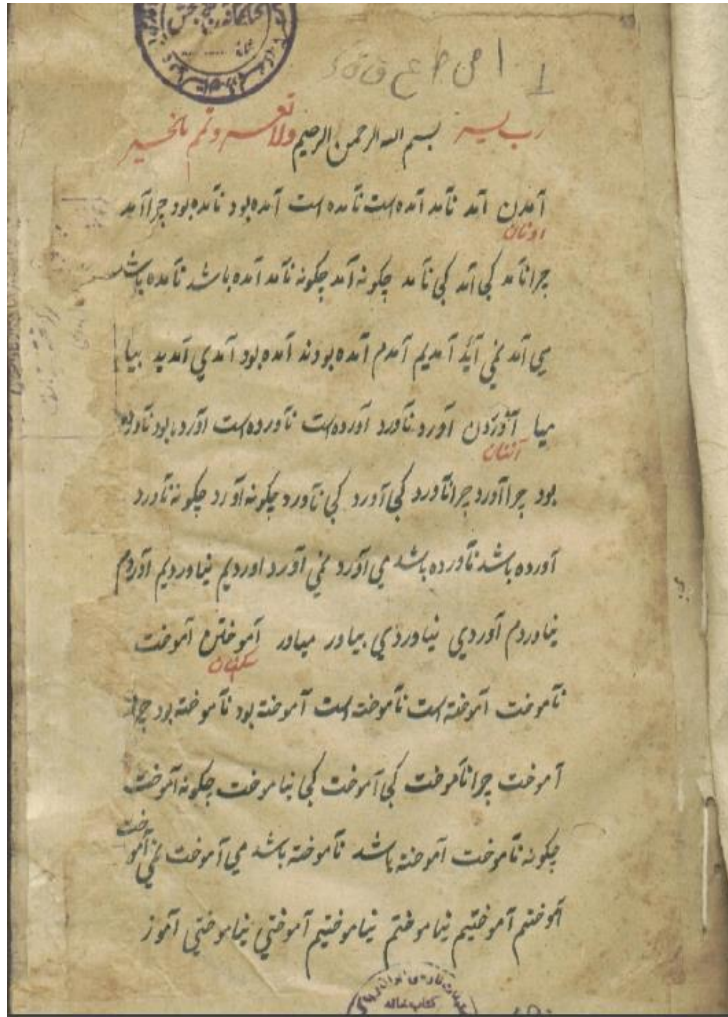 رب یسر بسم الله الرحمن الرحیم ولا تعسر وتمم بالخیر
آمدن آمد نآمد آمده است نآمده است آمده بود نآمده بود چرا آمد
چرا نآمد کی آمد کی نآمد چکونه آمد چکونه نآمد آمده باشد نآمده باشد
می آمد نمی آید آمدیم آمدم آمده بودند آمده بود آمدی آمدید بیا
میا آوردن آورد نآورد آورده است نآورده است آورده بود نآورده
بود چرا آورد چرا نآورد کی آورد کی نآورد چکونه آورد چکونه نآورد
آورده باشد نآورده باشد می آورد نمی آورد اوردیم نیاوردیم آوردم
نیاوردم آوردی نیاوردی بیاور میاور آموختن آموخت
نآموخت آموخته است نآموخته است آموخته بود نآموخته بود چرا
آموخت چرا نآموخت کی آموخت کی نیاموخت چکونه آموخت
چکونه نآموخت آموخته باشد نآموخته باشد می آموخت نمی آموخت
آموختم آموختیم نیاموختم نیاموختیم آموختی نیاموختی آموز
کتاب خانه